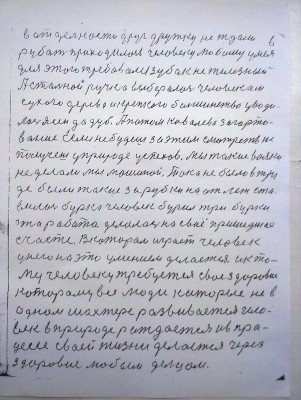 в отдельности друг дружку не ждали в
рубат приходилось человеку любому умея
для этого требовалы зубак не тилезный
А стальной ручка выберался человекам
сухого дерево и крепкого большинство уводо
далеем да дуб. А потом ковалев загарто
вание Если не будеш за этим смотреть не
получеш у природе успехов. Мы такие
не делали мы машиной. Тока не было в тру
де были такие зарубки на от лет ста
вилась бурка человек бурил три бурки
эта работа делалась на своё пришедшая
счасте. В котарам играет человек
унего на это умением делается и к то
му человеку требуется свое здоровие
котораму все люди каторые не в
одном шахтере развивается чело
век в природе раждается и в пра
цесе своей жизни делается через
здоровие любим делцом.